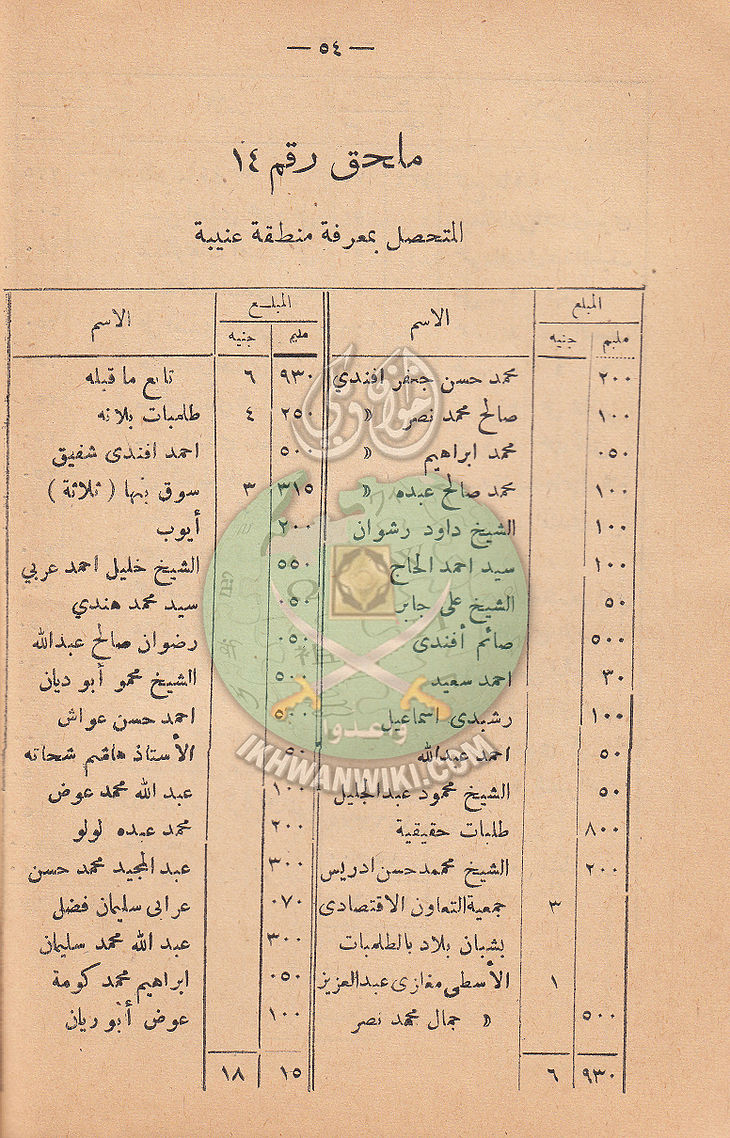 — ٥٤ —
ملحق رقم ١٤
المتحصل بمعرفة منطقة عنيبة
المبلغ الاسم المبلغ الاسم
مليم جنيه مليم جنيه
٢٠٠ محمد حسن جعفر افندي
١٠٠ صالح محمد نصر »
٠٥٠ محمد ابراهيم »
١٠٠ محمد صالح عبده »
١٠٠ الشيخ داود رشوان
١٠٠ سيد احمد الحاج
٥٠ الشيخ على جابر
٥٠٠ صائم أفندى
٣٠ احمد سعيد
١٠٠ رشيدى اسماعيل
٥٠ احمد عبدالله
٥٠ الشيخ محمود عبدالجليل
٨٠٠ طلبات حقيقية
٢٠٠ الشيخ محممد حسن ادريس
٣ جمعية التعاون الاقتصادى
بشبان بلاد بالطلمبات
١ الأسطى مغازى عبدالعزيز
٥٠٠ » جمال محمد نصر
٩٣٠ ٦
٩٣٠ ٦ تابع ما قبله
٢٥٠ ٤ طلمبات بلانه
٥٠٠ احمد افندى شفيق
٣١٥ ٣ سوق بنها ( ثلاثة )
٢٠٠ أيوب
٥٥٠ الشيخ خليل احمد عربي
٠٥٠ سيد محمد هندي
٠٥٠ رضوان صالح عبدالله
٥٠٠ الشيخ محمو أبو ديان
٥٠٠ احمد حسن عواش
٠٥٠ الأستاذ هاشم شحاته
١٠٠ عبد الله محمد عوض
٢٠٠ محمد عبده لولو
٣٠٠ عبد المجيد محمد حسن
٠٧٠ عرابى سليمان فضل
٣٠٠ عبد الله محمد سليمان
٠٥٠ ابراهيم محمد كومة
١٠٠ عوض أبو ريان
١٥ ١٨
إخوان ويكي
وأعدوا
IKHWANWIKI.COM